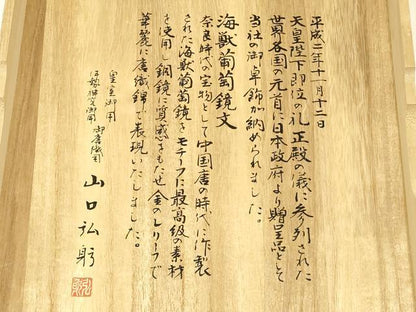 平成二年十一月十二日
天皇陛下即位の礼正殿の儀に参列された
世界各国の元首に日本政府より贈呈品として
当社の御卓飾が納められました。
海獣葡萄鏡文
奈良時代の宝物として中国唐の時代に作製
された海獣葡萄鏡をモチーフに最高級の素材
を使用し銅鏡に質感をもたせ金のレリーフで
華麗に唐織錦で表現いたしました。
皇室御用
伊勢神宮御用 御唐織司
山口弘躬